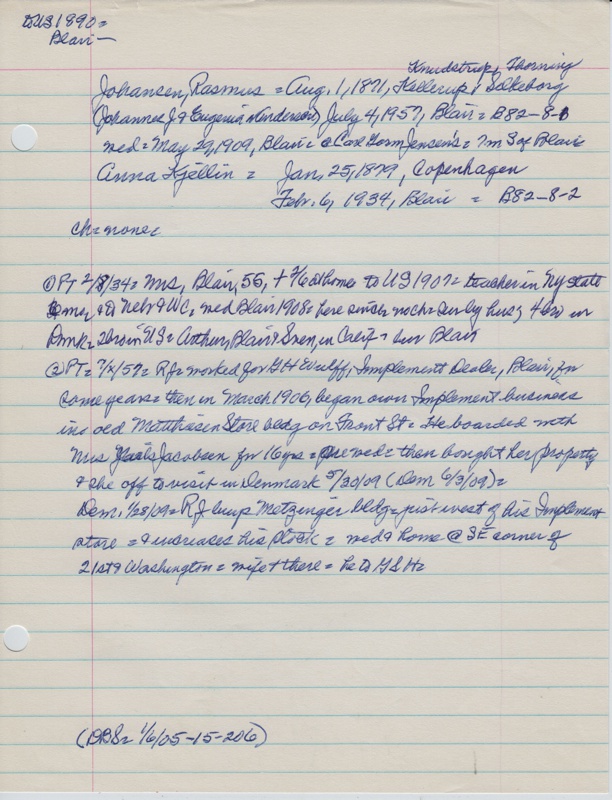 to US 1890=
Blair—
Knudstrup, Thorning
Johansen, Rasmus = Aug. 1, 1871, Kellerup, Silkeborg
(Johannes J & Eugenia Anderson), July 4, 1957, Blair = B82-8-1
wed = May 29, 1909, Blair = @ Carl Gorm Jensen's = 7m S of Blair
Anna Kjellin = Jan. 25, 1879, Copenhagen
Feb. 6, 1934, Blair = B82-8-2
ch = none =
① PT 2/8/34 = Mrs, Blair, 55, + 2/6 @ home to US 1907 = teacher in NY state
& Nebr & WC = wed Blair 1908 = here since = no ch = surv by husb, 4 bro in
Dmk = 2 bro in US = Arthur, Blair & Sven, in Calif = bur Blair
② PT = 7/ /57 = RJ = worked for GH Wulff, Implement Dealer, Blair, for
some years = then in March 1906, began own Implement business
in old Matthiesen Store bldg on Front St = He boarded with
Mrs Jacobsen for 16 yrs = wed = then bought her property
& she off to visit in Denmark 5/30/09 (Dem 6/3/09) =
Dem. 1/28/09 = RJ buys Metzinger bldg = just west of his Implement
store = & increases his stock = wed & home @ SE corner of
21st & Washington = wife + there = he to GSH =
(DBS = 1/6/05-15-206)